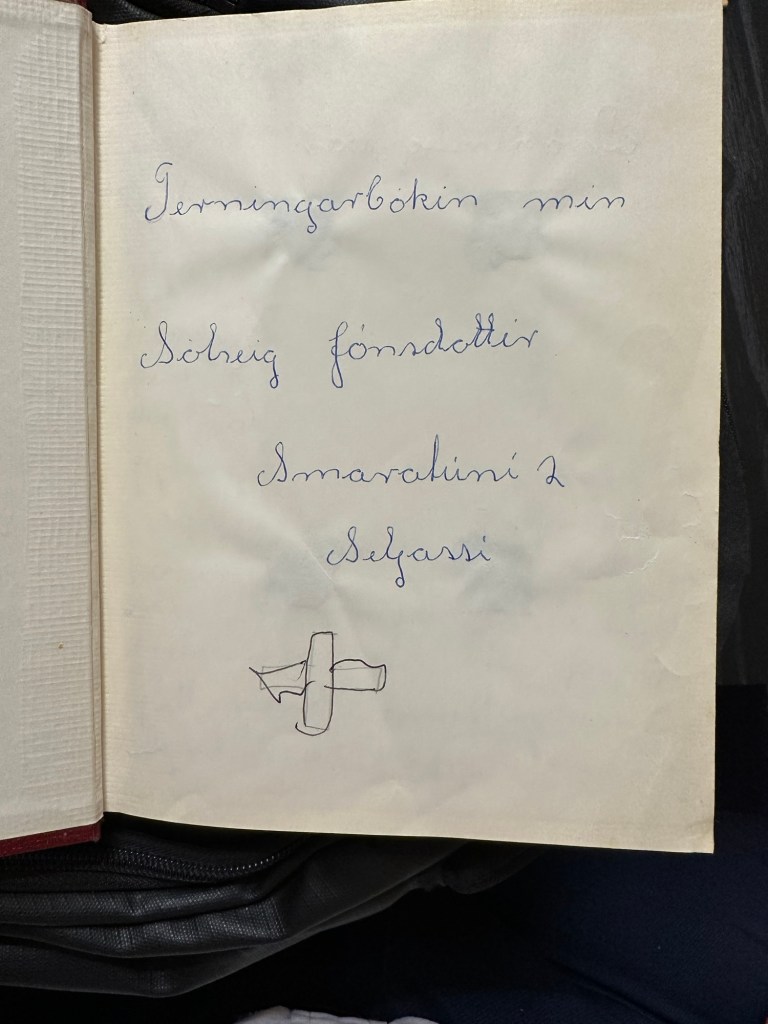 Fermingarbókin mín
Sólveig Jónsdóttir
Smáratúni 2
Selfossi